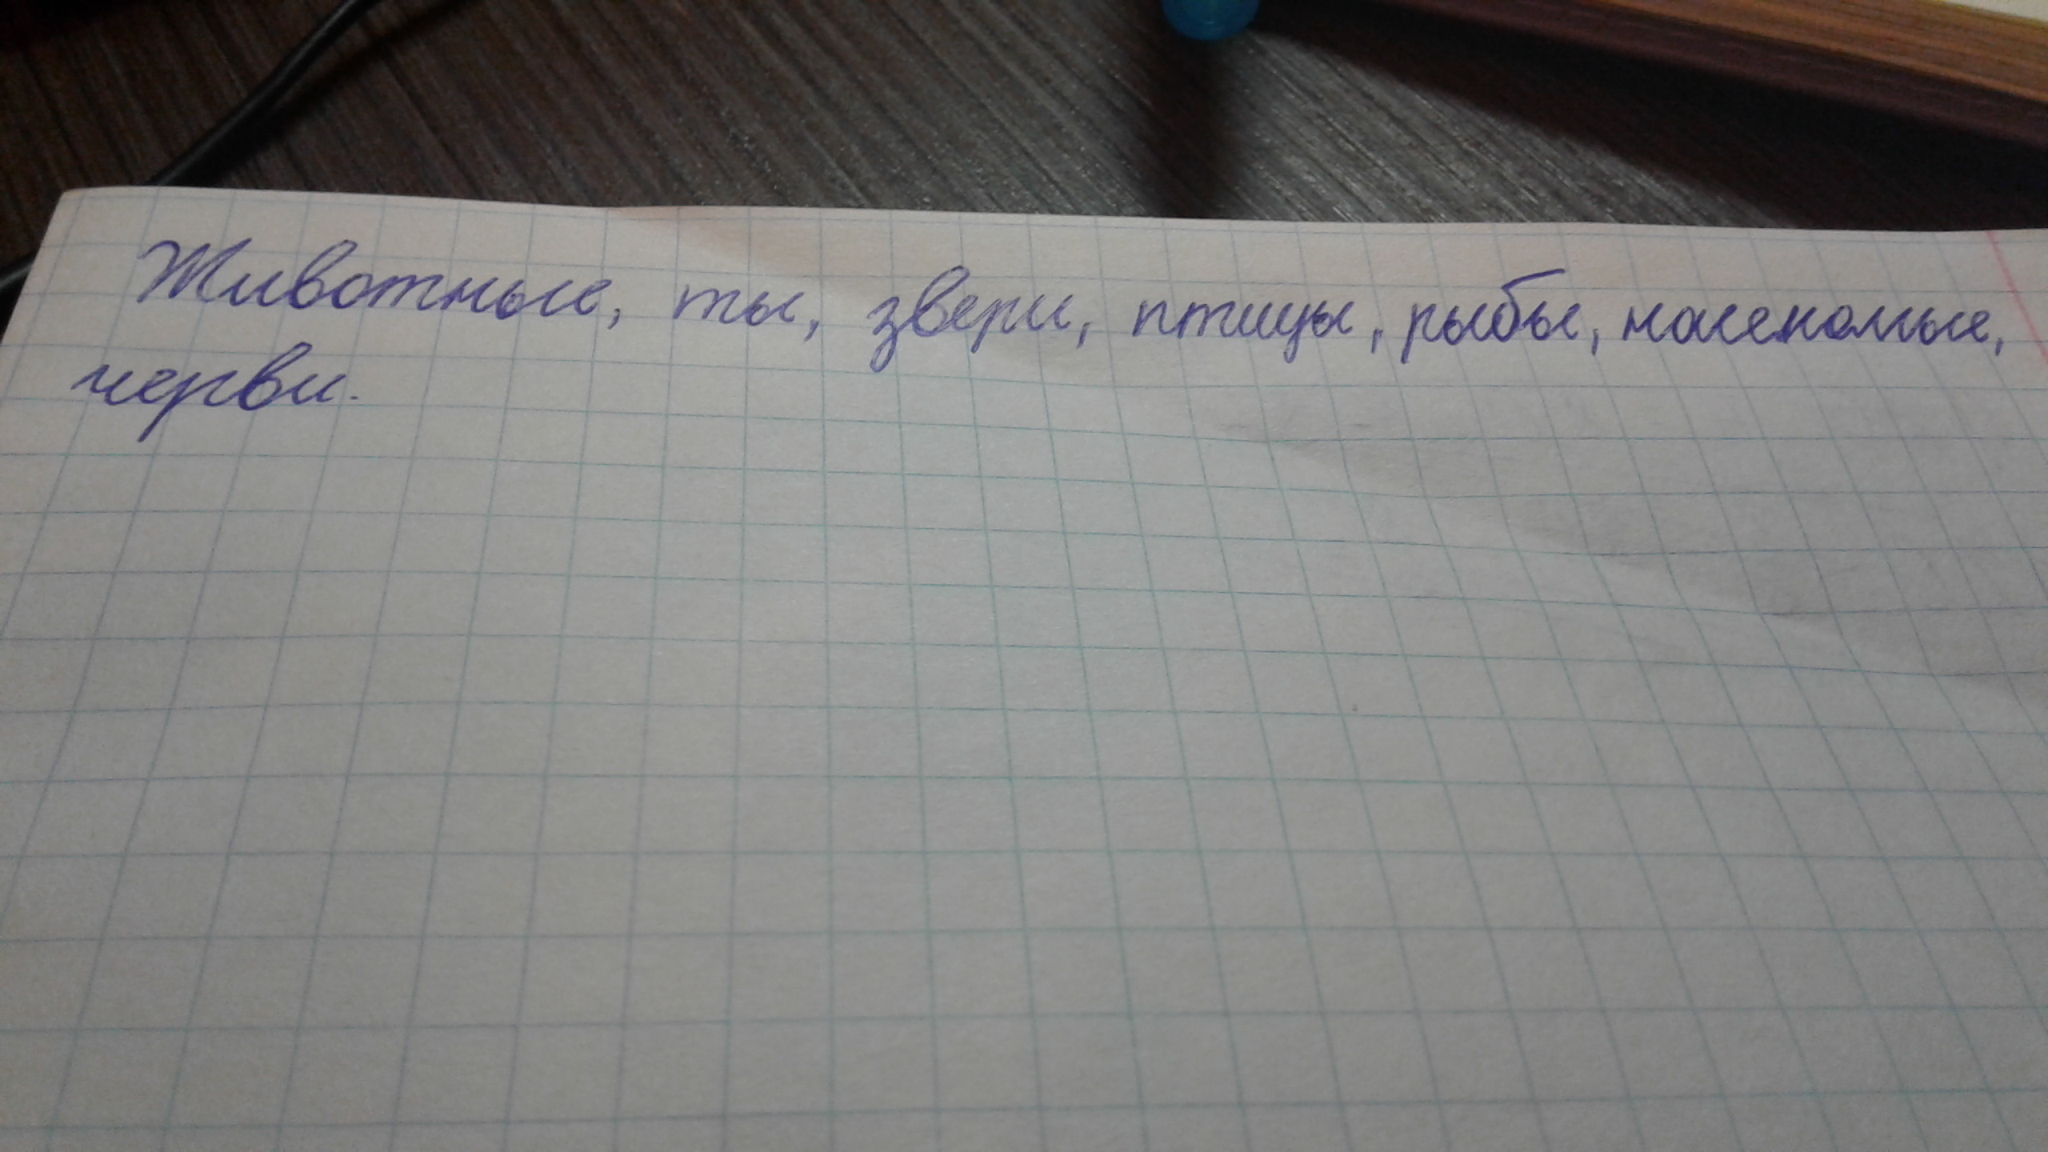 Животные, ты, звери, птицы, рыбы, насекомые,
черви.